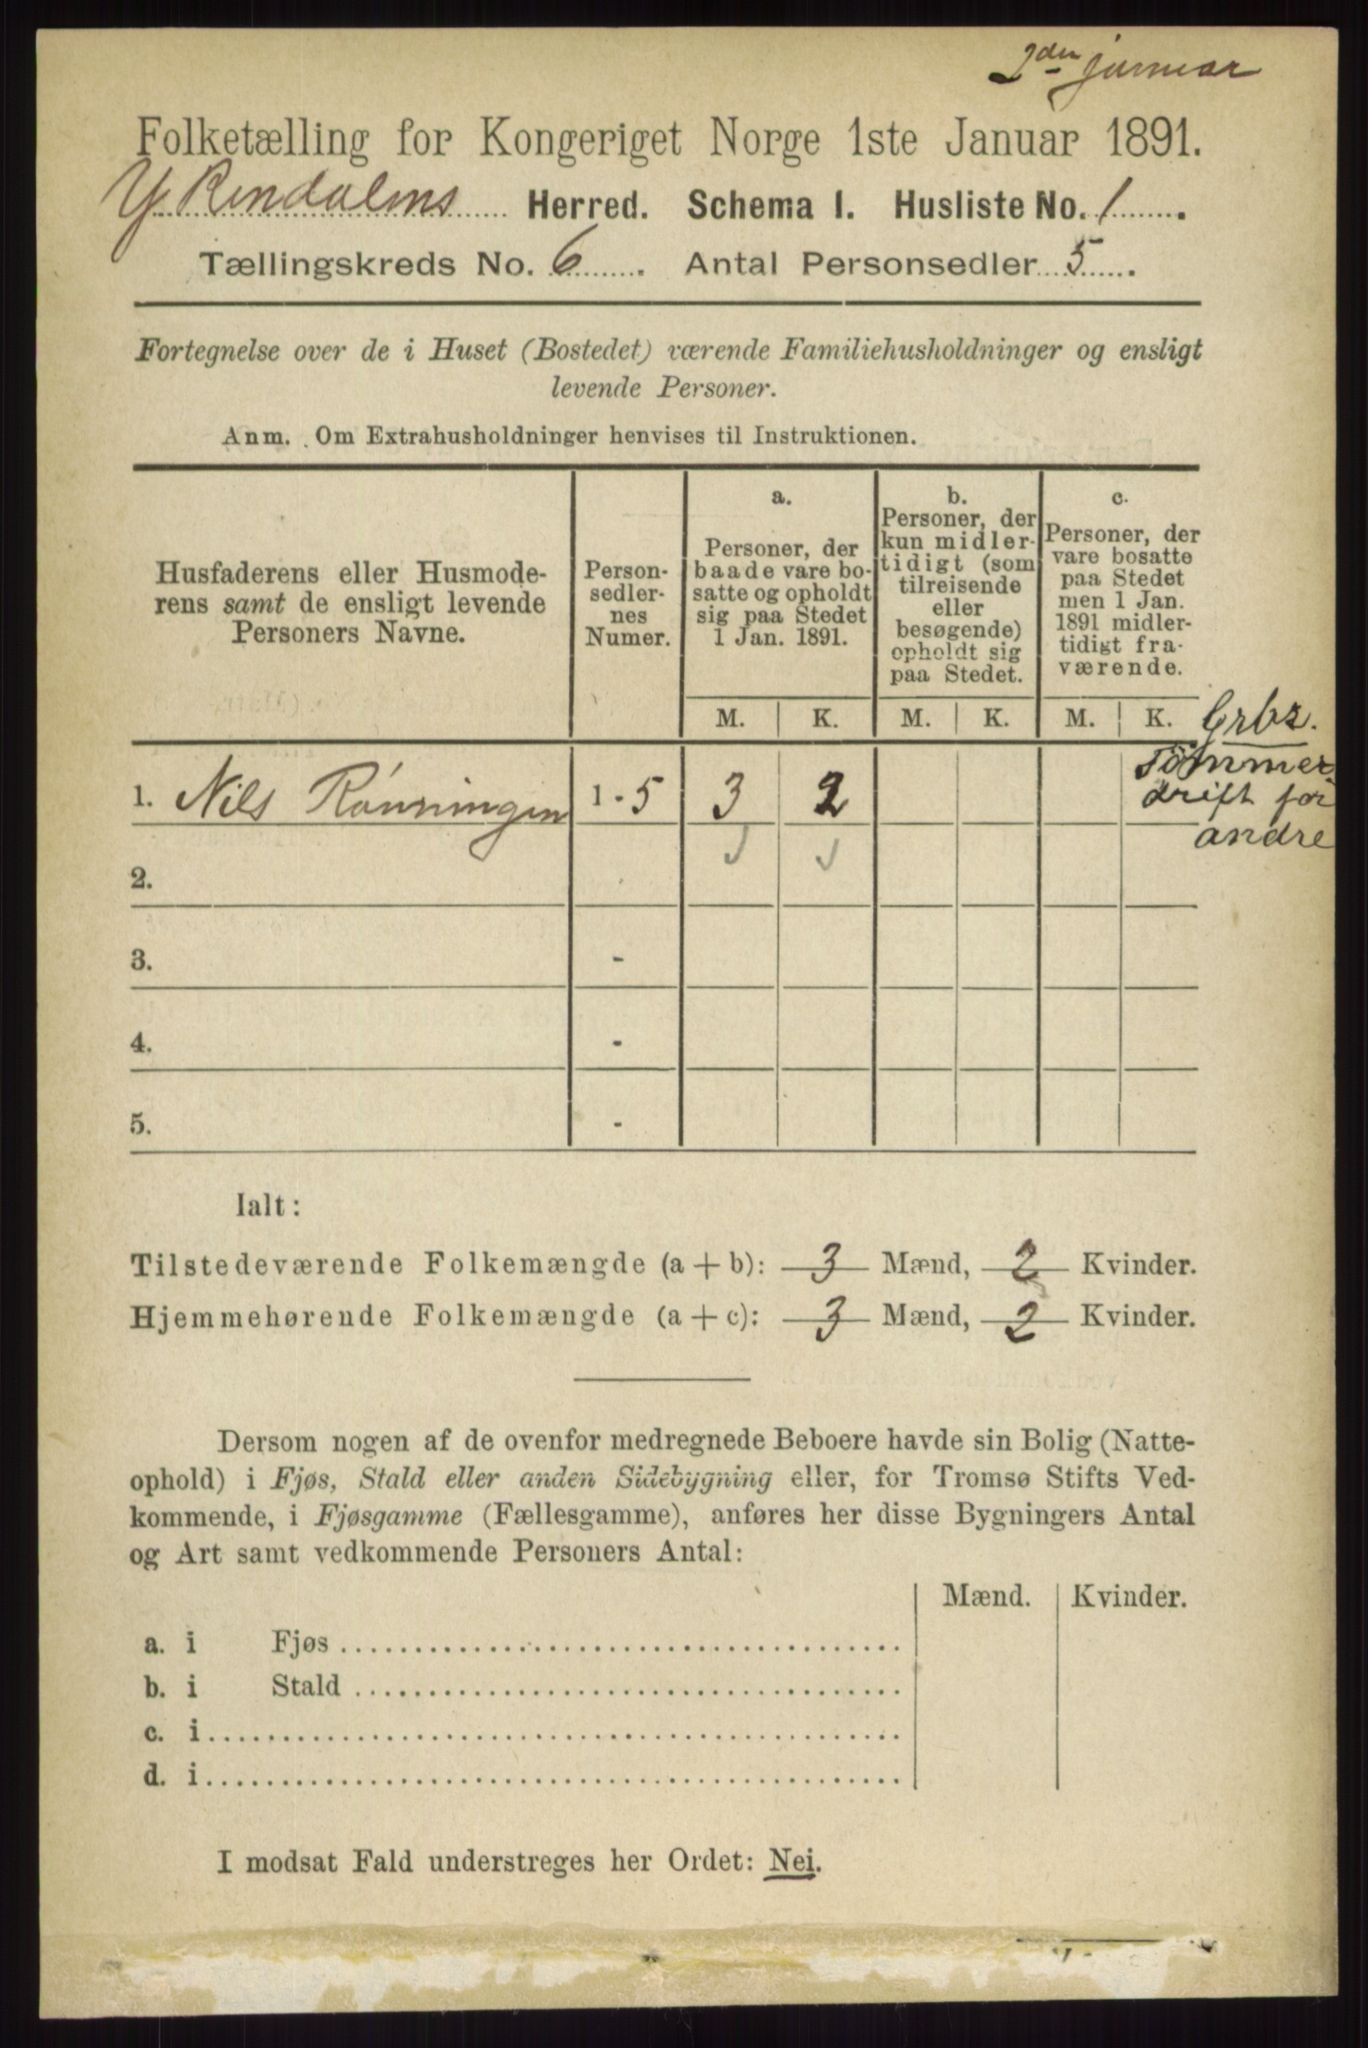 2den januar
Folketælling for Kongeriget Norge 1ste Januar 1891.
Y Rendalens Herred. Schema I. Husliste No. 1
Tællingskreds No. 6. Antal Personsedler 5
Fortegnelse over de i Huset (Bostedet) værende Familiehusholdninger og ensligt
levende Personer.
Anm. Om Extrahusholdninger henvises til Instruktionen.
Husfaderens eller Husmode-
rens samt de ensligt levende
Personers Navne.
Person-
sedler-
nes
Numer.
a.
Personer, der
baade vare bo-
satte og opholdt
sig paa Stedet
1 Jan. 1891.
b.
Personer, der
kun midler-
tidigt (som
tilreisende
eller
besøgende)
opholdt sig
paa Stedet.
c.
Personer, der
vare bosatte
paa Stedet
men 1 Jan.
1891 midler-
tidigt fra-
værende.
M. K. M. K. M. K.
Grbr.
Tømmer
drift for
andre
1. Nils Rønningen 1 - 5 3 2
2.
3. -
4. -
5. -
Ialt:
Tilstedeværende Folkemængde (a + b): 3 Mænd, 2 Kvinder.
Hjemmehørende Folkemængde (a + c): 3 Mænd, 2 Kvinder.
Dersom nogen af de ovenfor medregnede Beboere havde sin Bolig (Natte-
ophold) i Fjøs, Stald eller anden Sidebygning eller, for Tromsø Stifts Ved-
kommende, i Fjøsgamme (Fællesgamme), anføres her disse Bygningers Antal
og Art samt vedkommende Personers Antal:
Mænd. Kvinder.
a. i Fjøs
b. i Stald
c. i
d. i
I modsat Fald understreges her Ordet: Nei.